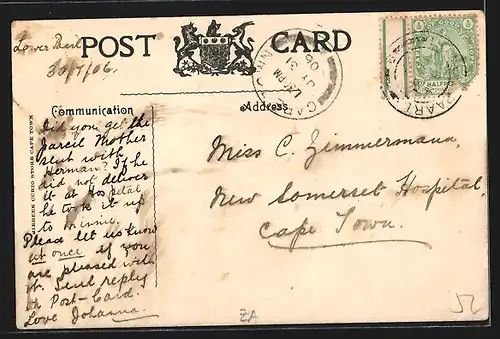 POST CARD
Lower Paarl
30/7/06.
Communication
Address
Did you get the
parcel Mother
sent with
Herman? If he
did not deliver
it at Hospital
he took it up
to Minnie.
Please let us know
at once if you
are pleased with
it. Send reply
on Post-Card.
Love Johanna.
Miss C. Zimmermann,
New Somerset Hospital,
Cape Town.
CURIO STORE CAPE TOWN
HALF
PAARL
JY 31
06
ZA